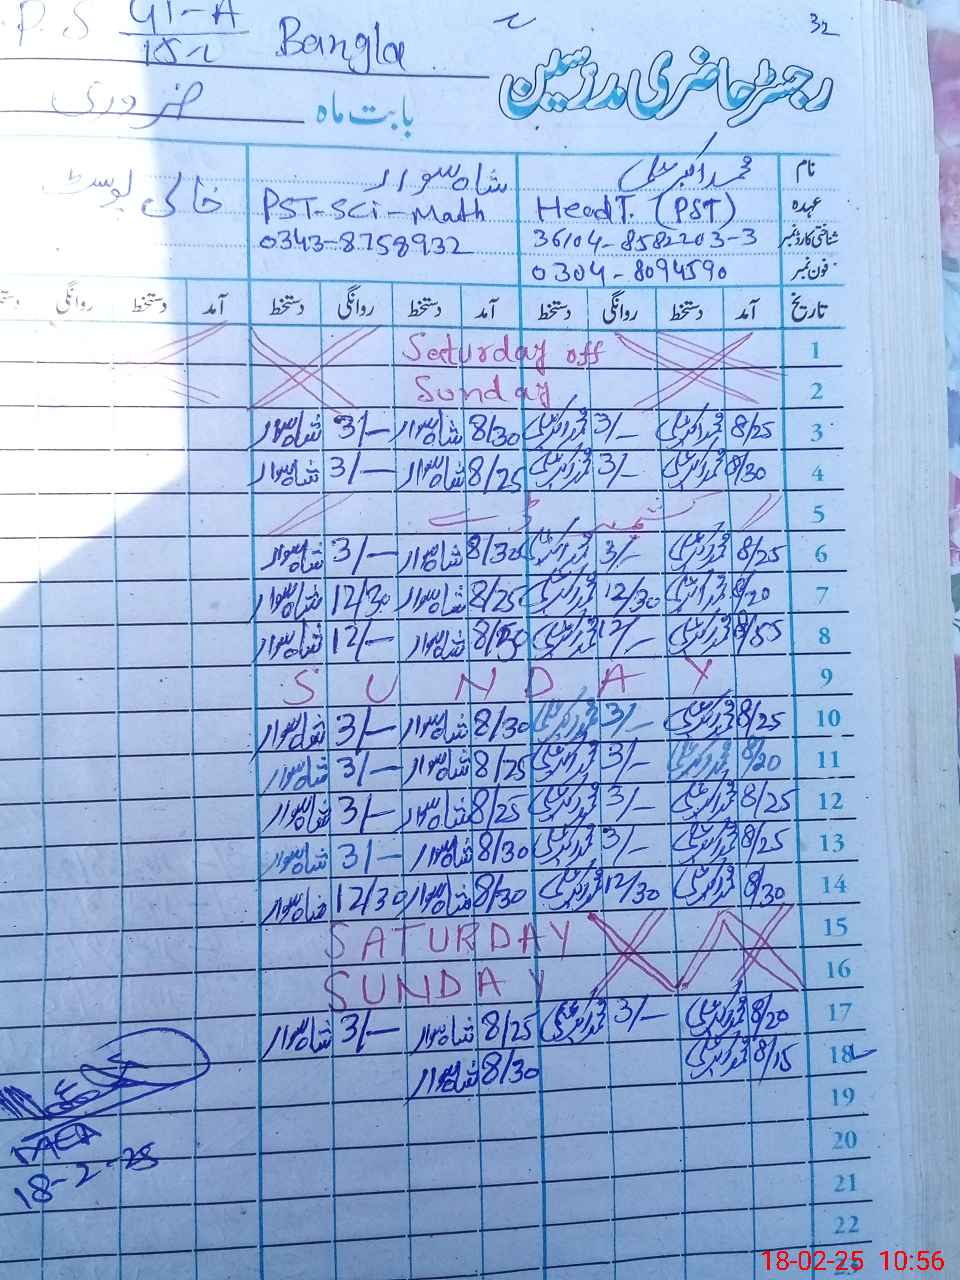 32
P.S 41-A/15-L Bangla
رجسٹر حاضری مدرسین
بابت ماہ فروری
نام محمد اکبر علی شاہ سوار خالی پوسٹ
عہدہ Head T. (PST) PST-Sci-Math
شناختی کارڈ نمبر 36104-8582203-3 0343-8758932
فون نمبر 0304-8094590
تاریخ آمد دستخط روانگی دستخط آمد دستخط روانگی دستخط آمد دستخط روانگی
1 Saturday off
2 Sunday
3 8/25 محمد اکبر علی 3/— محمد اکبر علی 8/30 شاہ سوار 3/— شاہ سوار
4 8/30 محمد اکبر علی 3/— محمد اکبر علی 8/25 شاہ سوار 3/— شاہ سوار
5 کشمیر ڈے
6 8/25 محمد اکبر علی 3/— محمد اکبر علی 8/30 شاہ سوار 3/— شاہ سوار
7 8/20 محمد اکبر علی 12/30 محمد اکبر علی 8/25 شاہ سوار 12/30 شاہ سوار
8 محمد اکبر علی 12/— محمد اکبر علی شاہ سوار 12/— شاہ سوار
9 SUNDAY
10 8/25 محمد اکبر علی 3/— محمد اکبر علی 8/30 شاہ سوار 3/— شاہ سوار
11 8/20 محمد اکبر علی 3/— محمد اکبر علی 8/25 شاہ سوار 3/— شاہ سوار
12 8/25 محمد اکبر علی 3/— محمد اکبر علی 8/25 شاہ سوار 3/— شاہ سوار
13 8/25 محمد اکبر علی 3/— محمد اکبر علی 8/30 شاہ سوار 3/— شاہ سوار
14 8/30 محمد اکبر علی 12/30 محمد اکبر علی 8/30 شاہ سوار 12/30 شاہ سوار
15 SATURDAY
16 SUNDAY
17 8/20 محمد اکبر علی 3/— محمد اکبر علی 8/25 شاہ سوار 3/— شاہ سوار
18 8/15 محمد اکبر علی 8/30 شاہ سوار
19
20
21
22
23
18-2-25
18-02-25 10:56